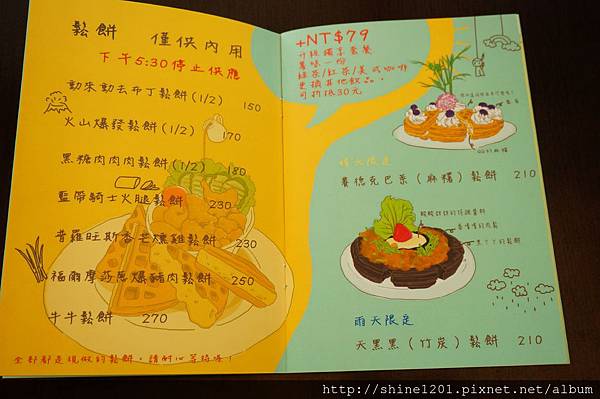 鬆餅 僅供內用
下午5:30停止供應
動來動去布丁鬆餅(1/2) 150
火山爆發鬆餅(1/2) 170
黑糖肉肉肉鬆餅(1/2) 180
藍帶騎士火腿鬆餅 230
普羅旺斯香芒燻雞鬆餅 230
福爾摩莎厚爆豬肉鬆餅 250
牛牛鬆餅 270
全部都是現做的鬆餅，請耐心等待唷！
+NT$79
升級獨享套餐
薯條一份
綠茶/紅茶/美式咖啡
更換其他飲品，
可折抵30元
晴天限定
賽德克巴萊(麻糬)鬆餅 210
雨天限定
天黑黑(竹炭)鬆餅 210
http://shine1201.pixnet.net/album